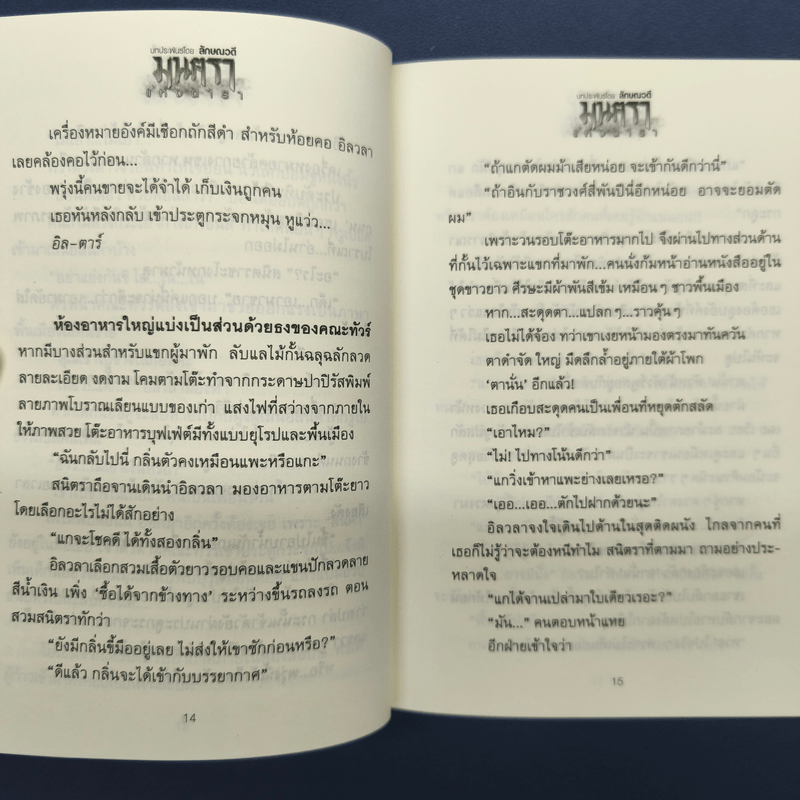 บทประพันธ์โดย ลักษณวดี
มนตรา
เครื่องหมายอังค์มีเชือกถักสีดำ สำหรับห้อยคอ อิลวลา
เลยคล้องคอไว้ก่อน...
พรุ่งนี้คนขายจะได้จำได้ เก็บเงินถูกคน
เธอหันหลังกลับ เข้าประตูกระจกหมุน หูแว่ว...
อิล-ตาร์
ห้องอาหารใหญ่แบ่งเป็นส่วนด้วยธงของคณะทัวร์
หากมีบางส่วนสำหรับแขกผู้มาพัก ลับแลไม้กั้นฉลุฉลักลวด
ลายละเอียด งดงาม โคมตามโต๊ะทำจากกระดาษปาปิรัสพิมพ์
ลายภาพโบราณเลียนแบบของเก่า แสงไฟที่สว่างจากภายใน
ให้ภาพสวย โต๊ะอาหารบุฟเฟ่ต์มีทั้งแบบยุโรปและพื้นเมือง
“ฉันกลับไปนี่ กลิ่นตัวคงเหมือนแพะหรือแกะ”
สนิตราถือจานเดินนำอิลวลา มองอาหารตามโต๊ะยาว
โดยเลือกอะไรไม่ได้สักอย่าง
“แกจะโชคดี ได้ทั้งสองกลิ่น”
อิลวลาเลือกสวมเสื้อตัวยาว รอบคอและแขนปักลวดลาย
สีน้ำเงิน เพิ่ง ‘ซื้อได้จากข้างทาง’ ระหว่างขึ้นรถลงรถ ตอน
สวมสนิตราทักว่า
“ยังมีกลิ่นขี้มืออยู่เลย ไม่ส่งให้เขาซักก่อนหรือ?”
“ดีแล้ว กลิ่นจะได้เข้ากับบรรยากาศ”
14
บทประพันธ์โดย ลักษณวดี
มนตรา
“ถ้าแกตัดผมม้าเสียหน่อย จะเข้ากันดีกว่านี่”
“ถ้าอินกับราชวงศ์สี่พันปีนี่อีกหน่อย อาจจะยอมตัด
ผม”
เพราะวนรอบโต๊ะอาหารมากไป จึงผ่านไปทางส่วนด้าน
ที่กั้นไว้เฉพาะแขกที่มาพัก...คนนั่งก้มหน้าอ่านหนังสืออยู่ใน
ชุดขาวยาว ศีรษะมีผ้าพันสีเข้ม เหมือนๆ ชาวพื้นเมือง
หาก...สะดุดตา...แปลกๆ...ราวคุ้นๆ
เธอไม่ได้จ้อง ทว่าเขาเงยหน้ามองตรงมาทันควัน
ตาดำจัด ใหญ่ มืดลึกล้ำอยู่ภายใต้ผ้าโพก
‘ตานั่น’ อีกแล้ว!
เธอเกือบสะดุดคนเป็นเพื่อนที่หยุดตักสลัด
“เอาไหม?”
“ไม่! ไปทางโน้นดีกว่า”
“แกวิ่งเข้าหาแพะย่างเลยเหรอ?”
“เออ...เออ...ตักไปฝากด้วยนะ”
อิลวลาจงใจเดินไปด้านในสุดติดผนัง ไกลจากคนที่
เธอก็ไม่รู้ว่าจะต้องหนีทำไม สนิตราที่ตามมา ถามอย่างประ-
หลาดใจ
“แกได้จานเปล่ามาใบเดียวเรอะ?”
“มัน...” คนตอบหน้าแหย
อีกฝ่ายเข้าใจว่า
15